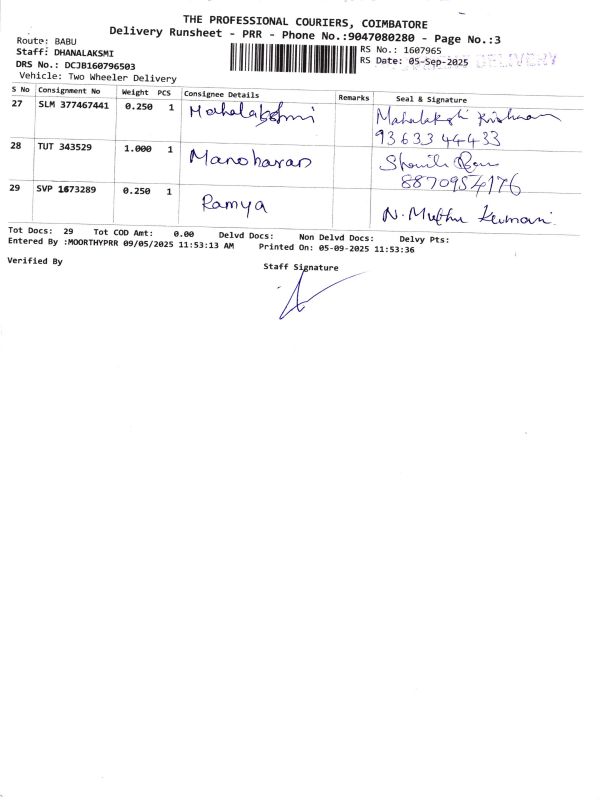 THE PROFESSIONAL COURIERS, COIMBATORE
Delivery Runsheet - PRR - Phone No.:9047080280 - Page No.:3
Route: BABU
Staff: DHANALAKSMI
RS No.: 1607965
DRS No.: DCJB160796503
RS Date: 05-Sep-2025 DELIVERY
Vehicle: Two Wheeler Delivery
S No Consignment No Weight PCS Consignee Details Remarks Seal & Signature
27 SLM 377467441 0.250 1 Mahalakshmi Mahalakshi Krishnan
93633 44433
28 TUT 343529 1.000 1 Manoharan
8870954176
29 SVP 1673289 0.250 1 Ramya N. Muthu Kumari
Tot Docs: 29 Tot COD Amt: 0.00 Delvd Docs: Non Delvd Docs: Delvy Pts:
Entered By :MOORTHYPRR 09/05/2025 11:53:13 AM Printed On: 05-09-2025 11:53:36
Verified By
Staff Signature